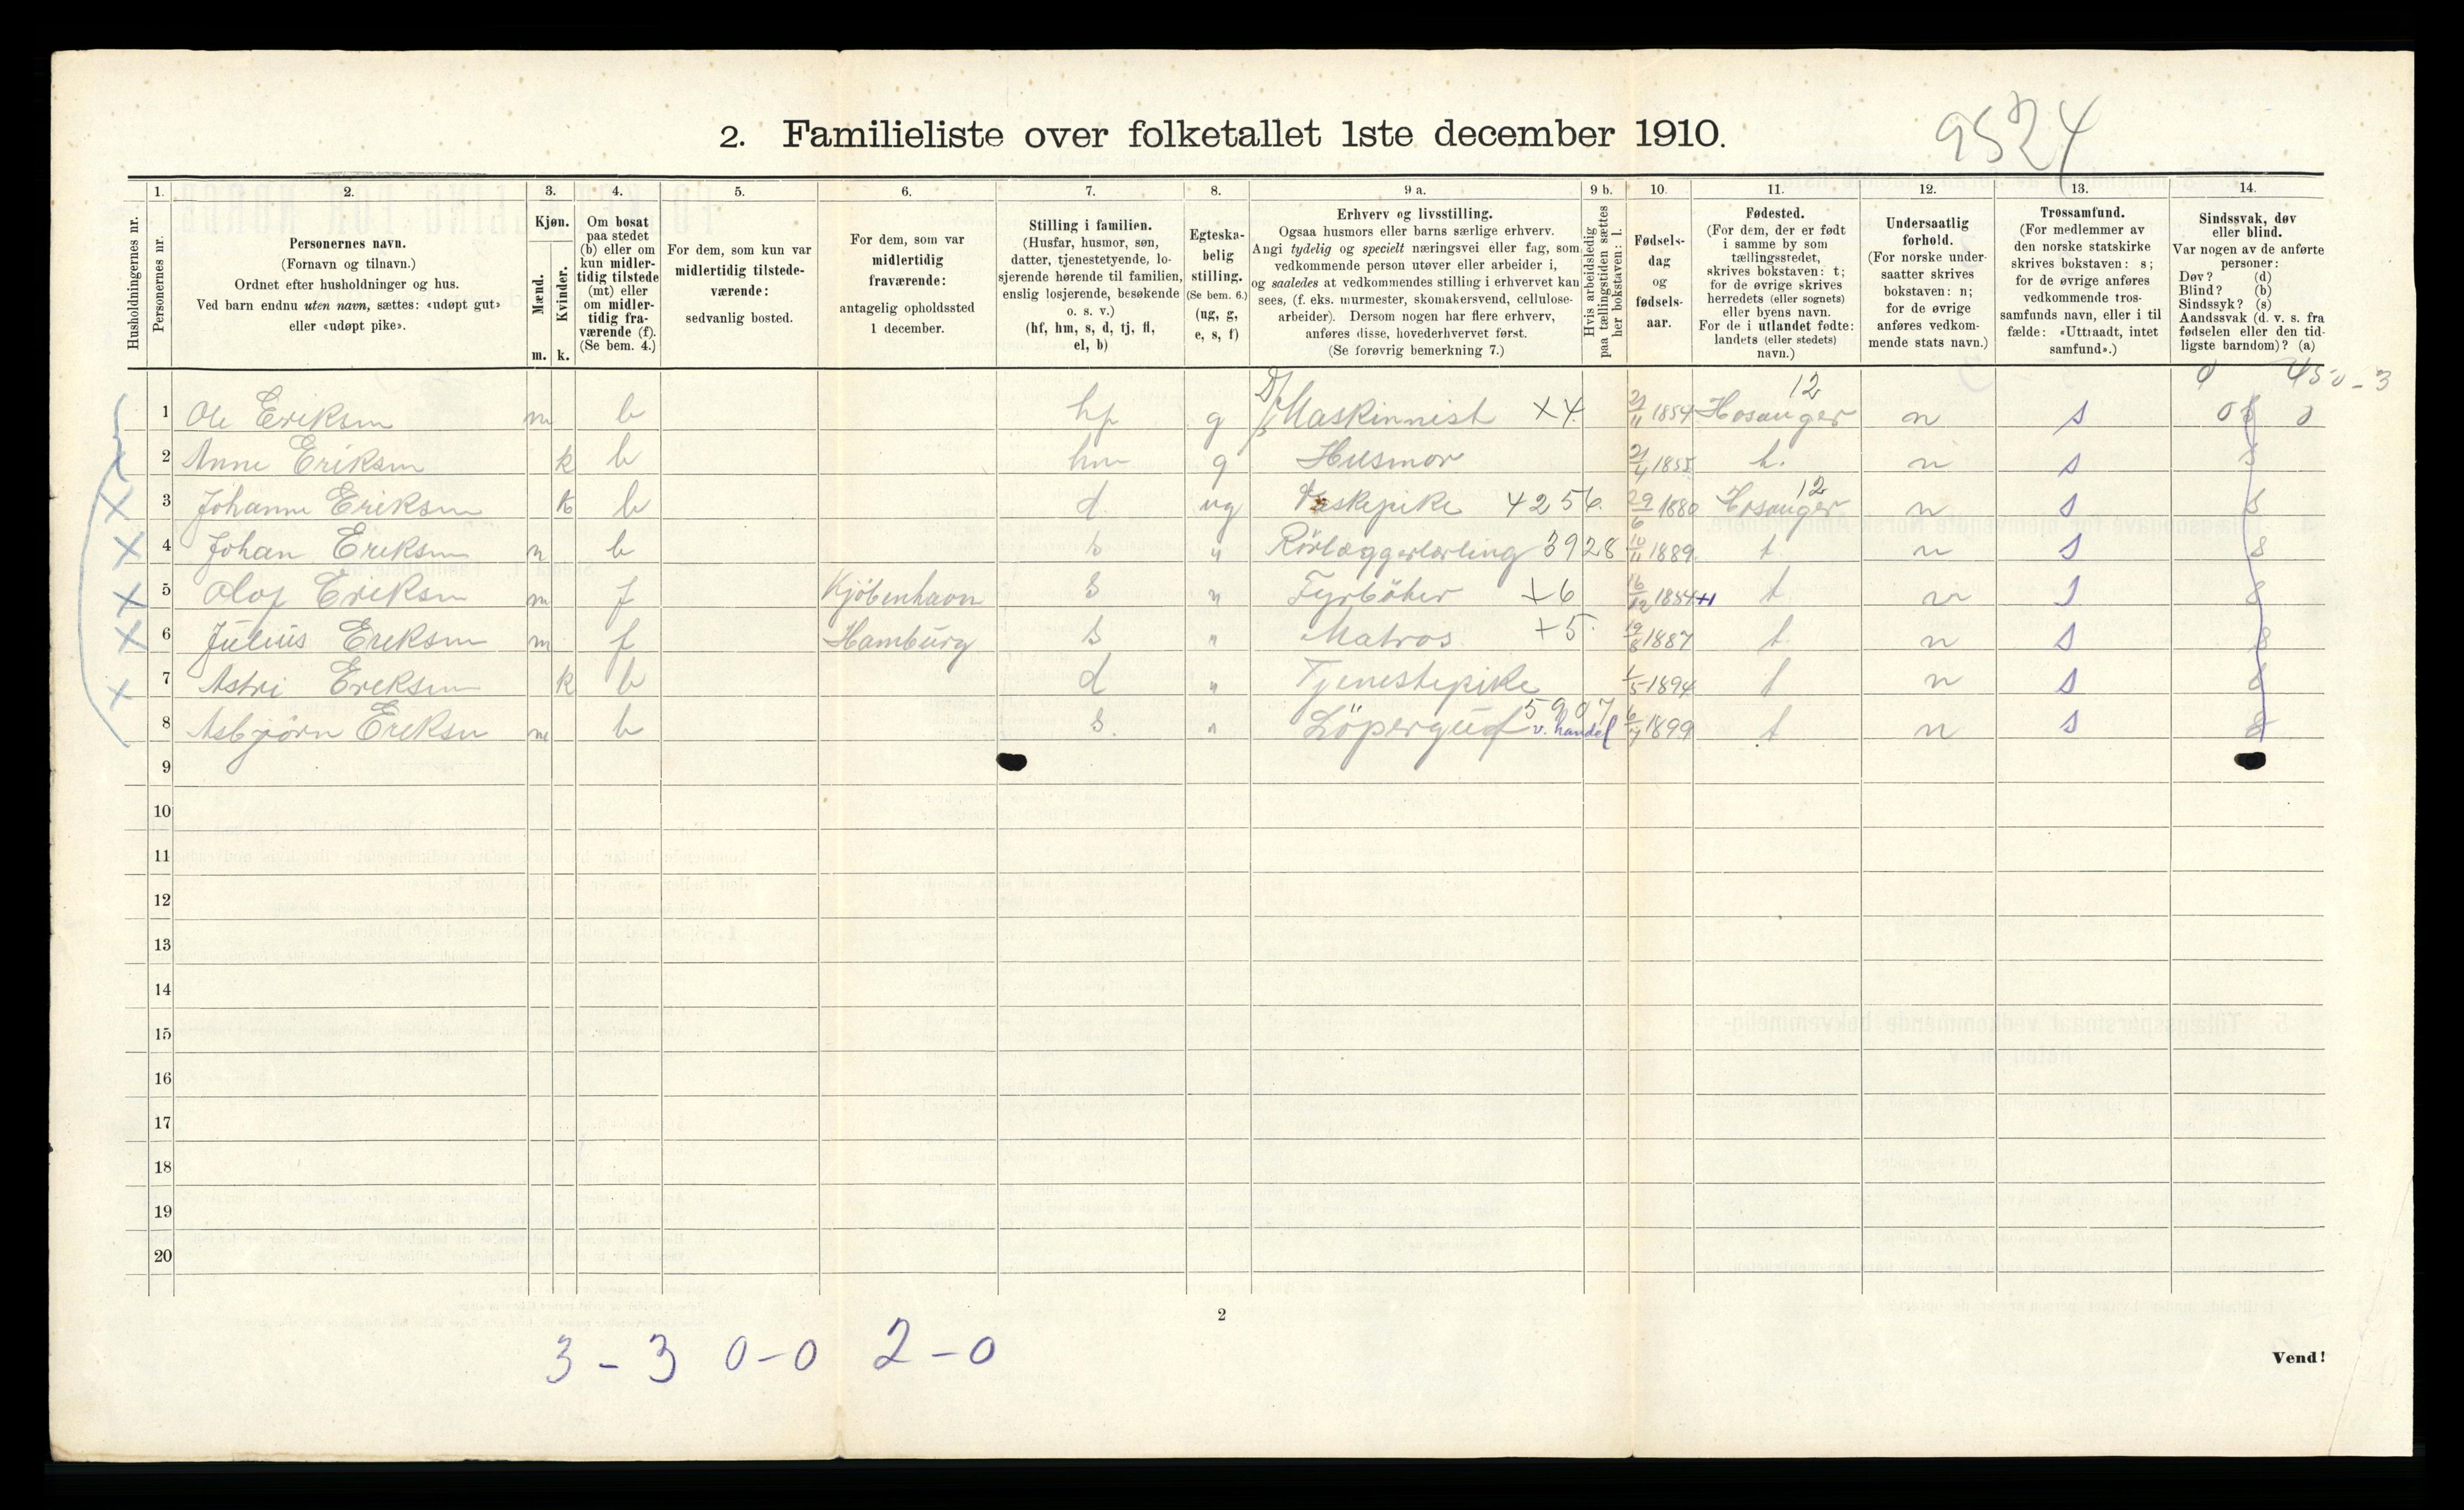 2. Familieliste over folketallet 1ste december 1910.
9524
1. 2. 3. 4. 5. 6. 7. 8. 9 a. 9 b. 10. 11. 12. 13. 14.
Husholdningernes nr.
Personernes nr.
Personernes navn.
(Fornavn og tilnavn.)
Ordnet efter husholdninger og hus.
Ved barn endnu uten navn, sættes: «udøpt gut»
eller «udøpt pike».
Kjøn.
Mænd.
Kvinder.
m. k.
Om bosat
paa stedet
(b) eller om
kun midler-
tidig tilstede
(mt) eller
om midler-
tidig fra-
værende (f).
(Se bem. 4.)
For dem, som kun var
midlertidig tilstede-
værende:
sedvanlig bosted.
For dem, som var
midlertidig
fraværende:
antagelig opholdssted
1 december.
Stilling i familien.
(Husfar, husmor, søn,
datter, tjenestetyende, lo-
sjerende hørende til familien,
enslig losjerende, besøkende
o. s. v.)
(hf, hm, s, d, tj, fl,
el, b)
Egteska-
belig
stilling.
(Se bem. 6.)
(ug, g,
e, s, f)
Erhverv og livsstilling.
Ogsaa husmors eller barns særlige erhverv.
Angi tydelig og specielt næringsvei eller fag, som
vedkommende person utøver eller arbeider i,
og saaledes at vedkommendes stilling i erhvervet kan
sees, (f. eks. murmester, skomakersvend, cellulose-
arbeider). Dersom nogen har flere erhverv,
anføres disse, hovederhvervet først.
(Se forøvrig bemerkning 7.)
Hvis arbeidsledig
paa tællingstiden sættes
her bokstaven: l.
Fødsels-
dag
og
fødsels-
aar.
Fødested.
(For dem, der er født
i samme by som
tællingsstedet,
skrives bokstaven: t;
for de øvrige skrives
herredets (eller sognets)
eller byens navn.
For de i utlandet fødte:
landets (eller stedets)
navn.)
Undersaatlig
forhold.
(For norske under-
saatter skrives
bokstaven: n;
for de øvrige
anføres vedkom-
mende stats navn.)
Trossamfund.
(For medlemmer av
den norske statskirke
skrives bokstaven: s;
for de øvrige anføres
vedkommende tros-
samfunds navn, eller i til
fælde: «Uttraadt, intet
samfund».)
Sindssvak, døv
eller blind.
Var nogen av de anførte
personer:
Døv? (d)
Blind? (b)
Sindssyk? (s)
Aandssvak (d. v. s. fra
fødselen eller den tid-
ligste barndom)? (a)
1 Ole Eriksen m b hf g Maskinnist X4 21/11 1854 12 Hosanger n s
2 Anne Eriksen k b hm g Husmor 21/4 1855 n s
3 Johanne Eriksen k b d ug Vaskepike 4256. 29/6 1880 12 Hosanger n s
4 Johan Eriksen m b s " Rörlæggerlærling 3928 10/11 1889 t n s
5 Olaf Eriksen m f Kjöbenhavn s " Fyrböter +6 16/12 1884 t n s
6 Julius Eriksen m f Hamburg s " Matros +5 19/8 1887 t. n s
7 Astri Eriksen k b d " Tjenestepike 1/5 1894 t n s
8 Asbjörn Eriksen m b s. " Löpergut 5907 v. handel 6/7 1899 t n s
9
10
11
12
13
14
15
16
17
18
19
20
2
3 – 3 0 – 0 2 – 0
Vend!